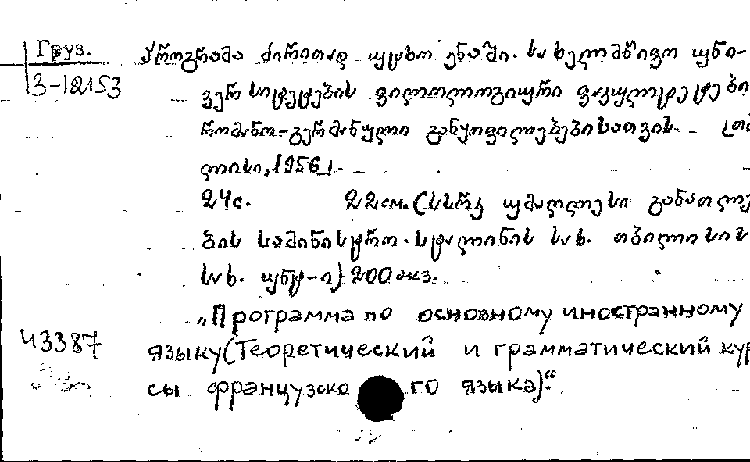 Груз.
3-12153
პროგრამა ძირითად უცხო ენაში. სახელმწიფო უნი-
ვერსიტეტების ფილოლოგიური ფაკულტეტები
რომანო-გერმანული განყოფილებებისათვის. [თბ
ილისი, 1956].
24с. 22см. (სსრკ უმაღლესი განათლე
ბის სამინისტრო. სტალინის სახ. თბილისის
სახ. უნტ-ი) 200 экз.
„Программа по основному иностранному
языку (Теоретический и грамматический кур
сы французско го языка)."
43387